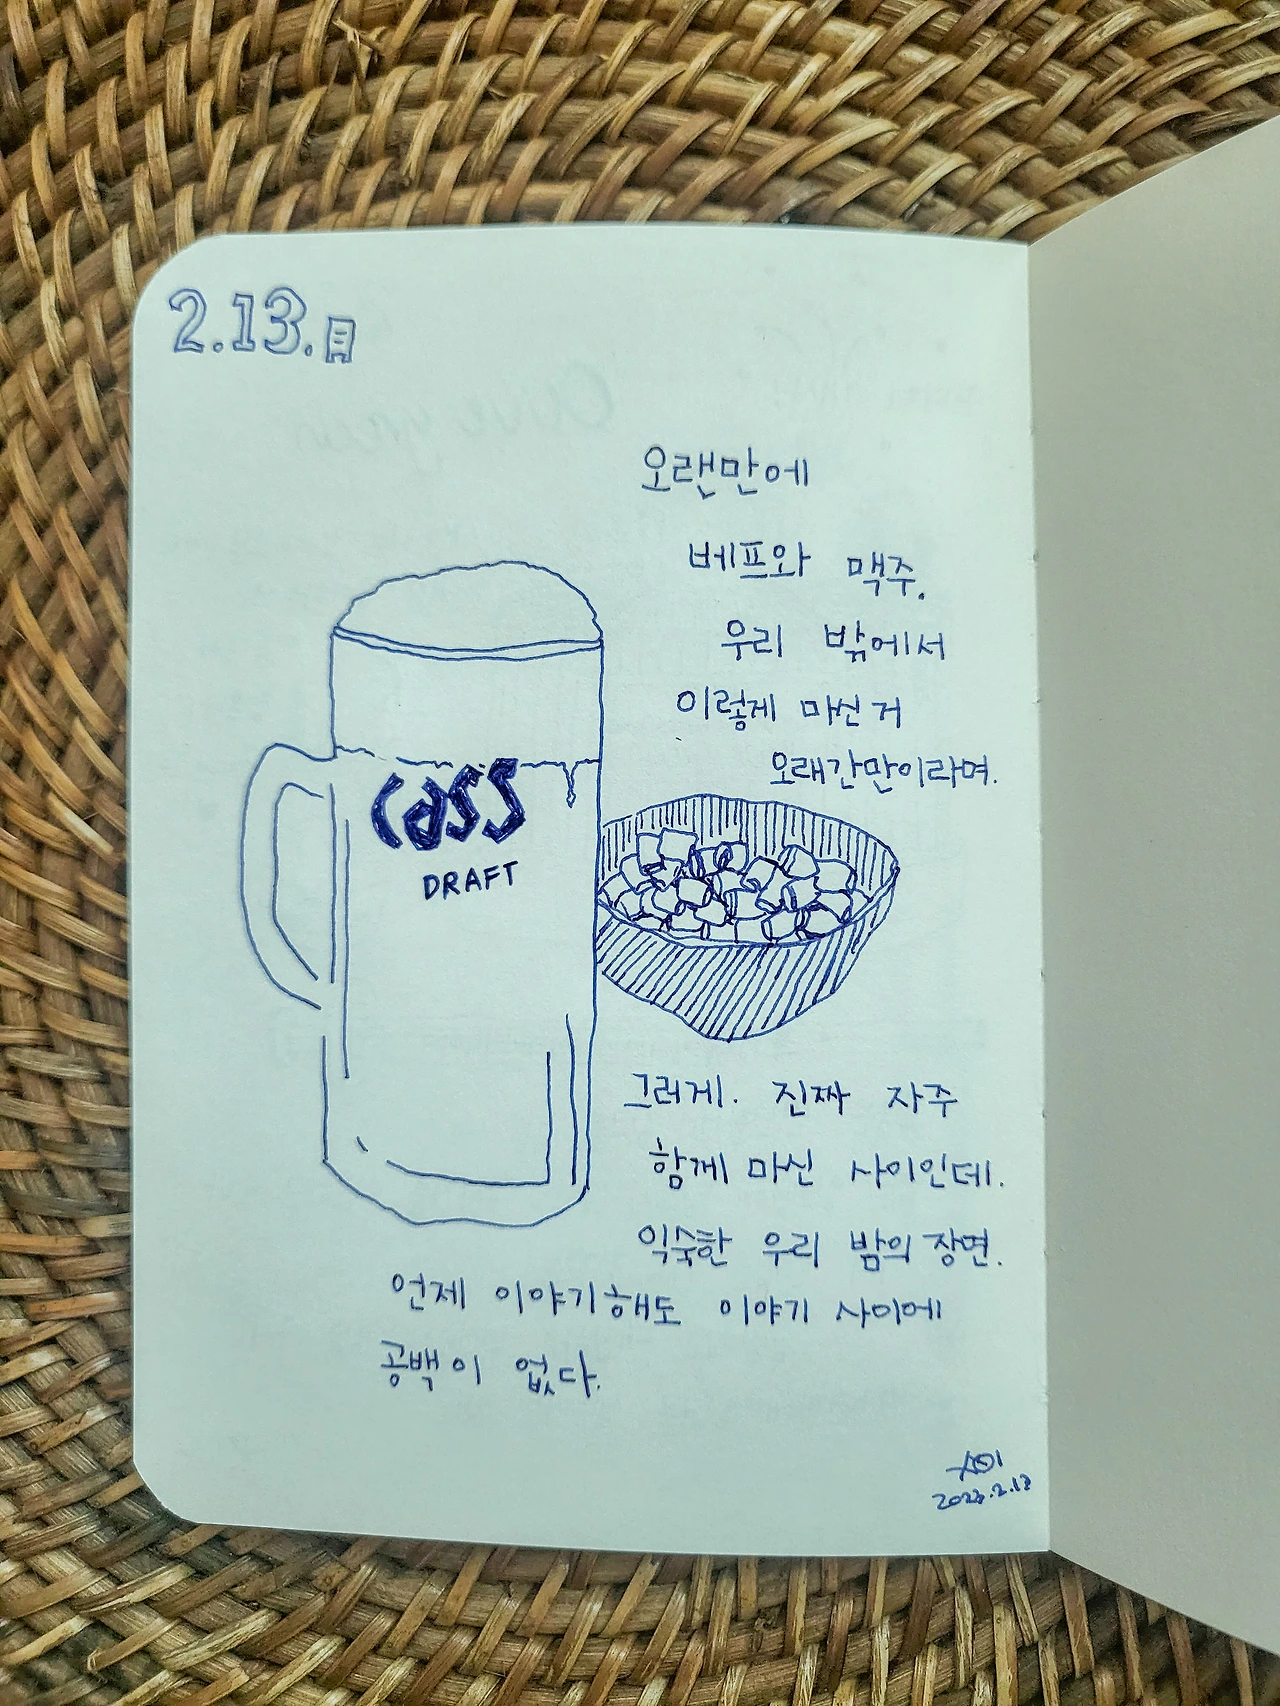 2.13.月
오랜만에
베프와 맥주.
우리 밖에서
이렇게 마신 거
오래간만이라며.
Cass
DRAFT
그러게. 진짜 자주
함께 마신 사이인데.
익숙한 우리 밤의 장면.
언제 이야기해도 이야기 사이에
공백이 없다.
2023.2.13